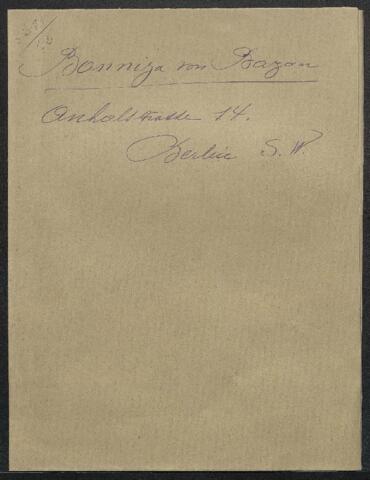 Bonniza von Bazan
Anhalstrasse 14.
Berlin S. W.